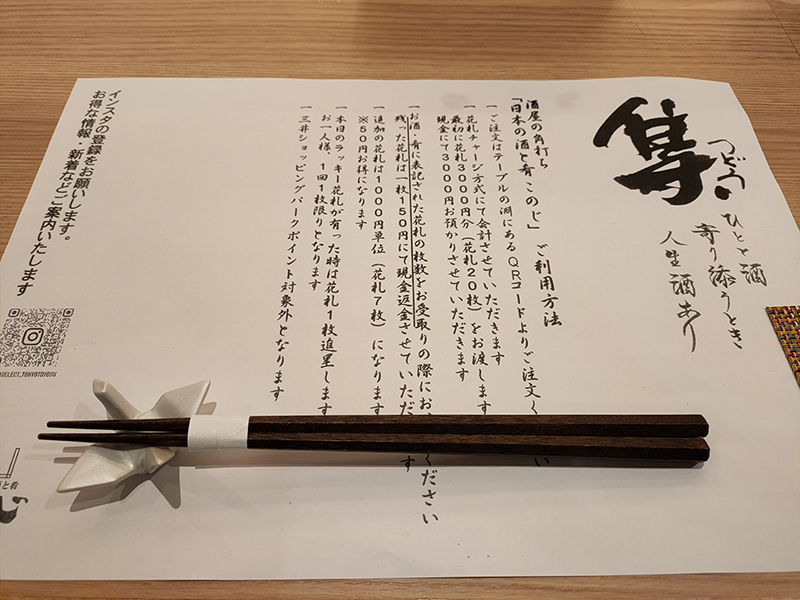 ひとと酒
寄り添うとき
人生酒あり
酒屋の角打ち
「日本の酒と肴 このじ」 ご利用方法
一 ご注文はテーブルの淵にあるQRコードよりご注文く い
一 花札チャージ方式にて会計させていただきます
最初に花札3000円分（花札20枚）をお渡します
現金にて3000円お預かりさせていただきます
一 お酒・肴に表記された花札の枚数をお受取りの際にお ください
残った花札は一枚150円にて現金返金させていただ す
一 追加の花札は1000円単位（花札7枚）になります
※50円お得になります
一 本日のラッキー花札が有った時は花札1枚進呈します
お一人様、1回1枚限りとなります
一 三井ショッピングパークポイント対象外となります
インスタの登録をお願いします。
お得な情報・新着などご案内いたします
SELECT.TOKYOTOYOSU
と肴